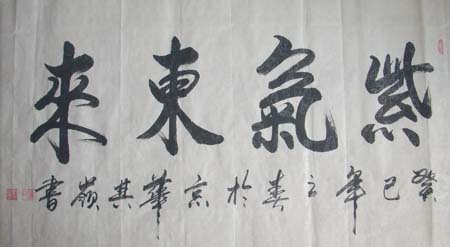 紫氣東來
癸巳年之春於京華其嶺書